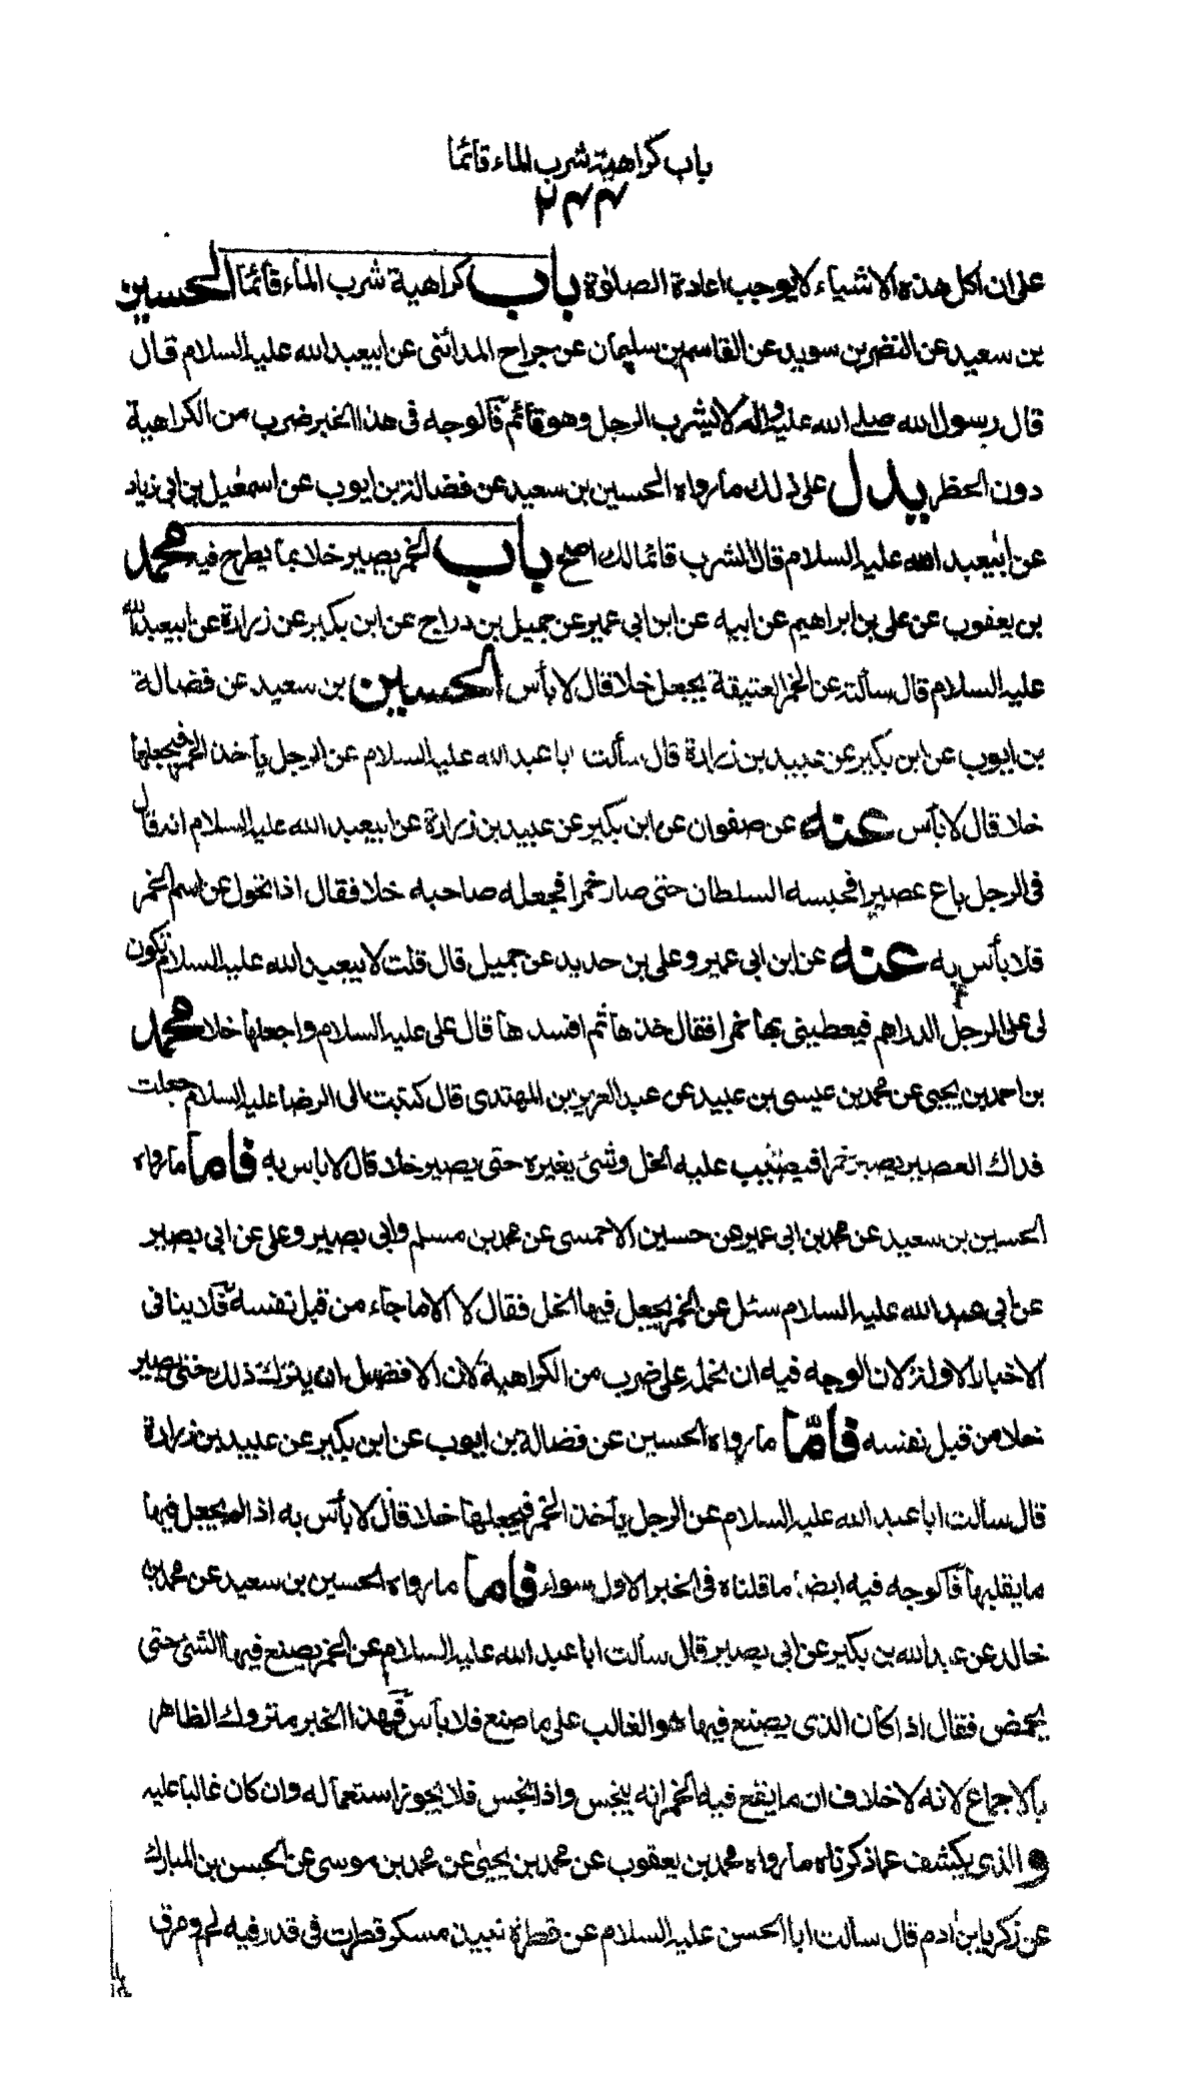 باب كراهية شرب الماء قائما
على ان اكل هذه الاشياء لا يوجب اعادة الصلوٰة باب كراهية شرب الماء قائما الحسين
بن سعيد عن النضر بن سويد عن القاسم بن سليمان عن جراح المدائنى عن ابيعبد الله عليه السلام قال
قال رسول الله صلى الله عليه واله لا يشرب الرجل وهو قائم فالوجه فى هذا الخبر ضرب من الكراهية
دون الحظر يدل على ذلك ما رواه الحسين بن سعيد عن فضالة بن ايوب عن اسمعيل بن ابى زياد
عن ابيعبد الله عليه السلام قال الشرب قائما لك اصلح باب الخمر يصير خلا بما يطرح فيه محمد
بن يعقوب عن على بن ابراهيم عن ابيه عن ابن ابى عمير عن جميل بن دراج عن ابن بكير عن زرارة عن ابيعبد الله
عليه السلام قال سألته عن الخمر العتيقة يجعل خلا قال لا بأس الحسين بن سعيد عن فضالة
بن ايوب عن ابن بكير عن عبيد بن زرارة قال سألت ابا عبد الله عليه السلام عن الرجل يأخذ الخمر فيجعلها
خلا قال لا بأس عنه عن صفوان عن ابن بكير عن عبيد بن زرارة عن ابيعبد الله عليه السلام انه قال
فى الرجل باع عصيرا فحبسه السلطان حتى صار خمرا فجعله صاحبه خلا فقال اذا تحول عن اسم الخمر
فلا بأس به عنه عن ابن ابى عمير وعلى بن حديد عن جميل قال قلت لابيعبد الله عليه السلام تكون
لى على الرجل الدراهم فيعطينى بها خمرا فقال خذها ثم افسدها قال على عليه السلام واجعلها خلا محمد
بن احمد بن يحيى عن محمد بن عيسى بن عبيد عن عبد العزيز بن المهتدى قال كتبت الى الرضا عليه السلام جعلت
فداك العصير يصير خمرا فيصب عليه الخل وشئ يغيره حتى يصير خلا قال لا باس به فاما ما رواه
الحسين بن سعيد عن محمد بن ابى عمير عن حسين الاحمسى عن محمد بن مسلم وابى بصير وعلى عن ابى بصير
عن ابى عبد الله عليه السلام سئل عن الخمر يجعل فيها الخل فقال لا الا ما جاء من قبل نفسه فلا ينافى
الاخبار الاولة لان الوجه فيه ان يحمل على ضرب من الكراهية لان الافضل ان يترك ذلك حتى يصير
خلا من قبل نفسه فامّا ما رواه الحسين عن فضالة بن ايوب عن ابن بكير عن عبيد بن زرارة
قال سألت ابا عبد الله عليه السلام عن الرجل يأخذ الخمر فيجعلها خلا قال لا بأس به اذا لم يجعل فيها
ما يقلبها فالوجه فيه ايضا ما قلناه فى الخبر الاول سواء فاما ما رواه الحسين بن سعيد عن محمد بن
خالد عن عبد الله بن بكير عن ابى بصير قال سألت ابا عبد الله عليه السلام عن الخمر يصنع فيها الشئ حتى
يحمض فقال اذا كان الذى يصنع فيها هو الغالب على ما صنع فلا بأس فهذا الخبر متروك الظاهر
بالاجماع لانه لا خلاف ان ما يقع فيه الخمر انه ينجس واذا نجس فلا يجوز استعماله وان كان غالبا عليه
و الذى يكشف عما ذكرناه ما رواه محمد بن يعقوب عن محمد بن يحيى عن محمد بن موسى عن الحسن بن المبارك
عن زكريا بن ادم قال سألت ابا الحسن عليه السلام عن قطرة نبيذ مسكر قطرت فى قدر فيه لحم ومرق